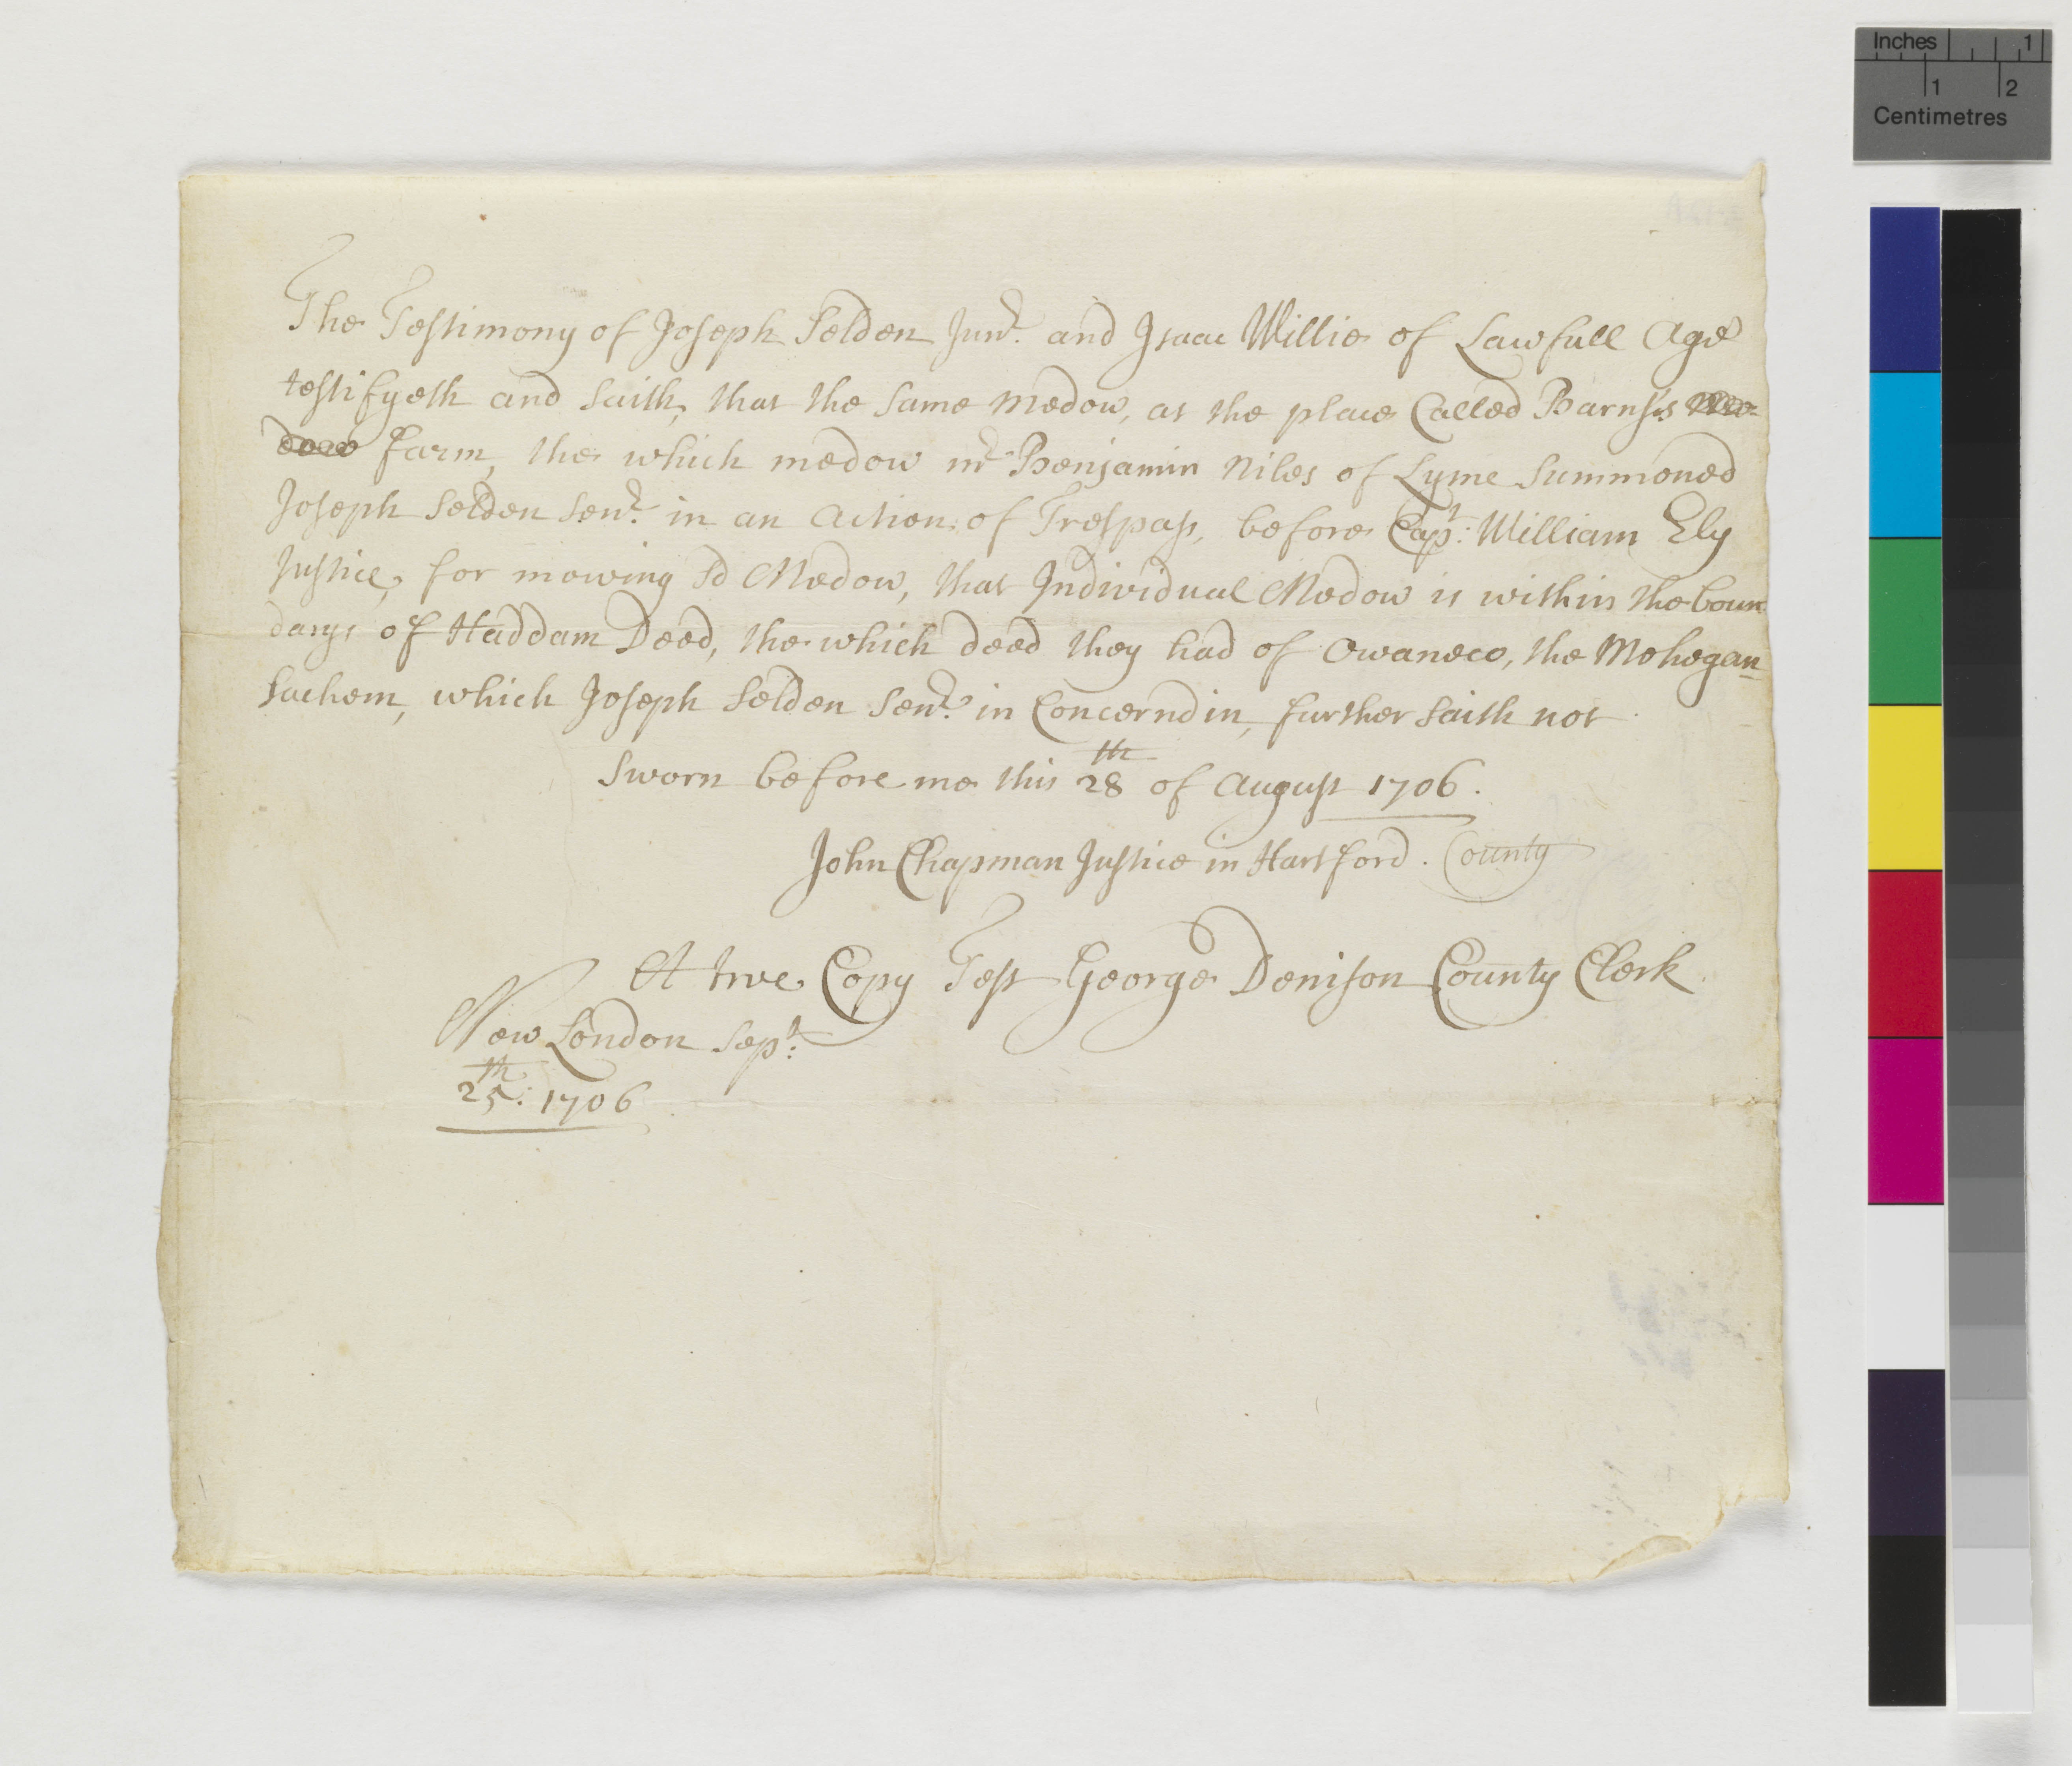 The Testimony of Joseph Selden Junr. and Isaac Willie of Lawfull Age
testifyeth and saith, that the same medow, at the place Called Barnses
farm, the which medow mr. Benjamin Niles of Lyme Summoned
Joseph Selden Senr. in an action of Trespass, before Capt: William Ely
Justice, for mowing sd Medow, that Individual Medow is within the boun
darys of Haddam Deed, the which deed they had of Owaneco, the Mohegan
Sachem, which Joseph Selden Senr. in Concernd in, further saith not
Sworn before me this 28th of August 1706.
John Chapman Justice in Hartford. County
A true Copy Test George Denison County Clerk
New London Sept:
25th: 1706
Inches 1
1 2
Centimetres